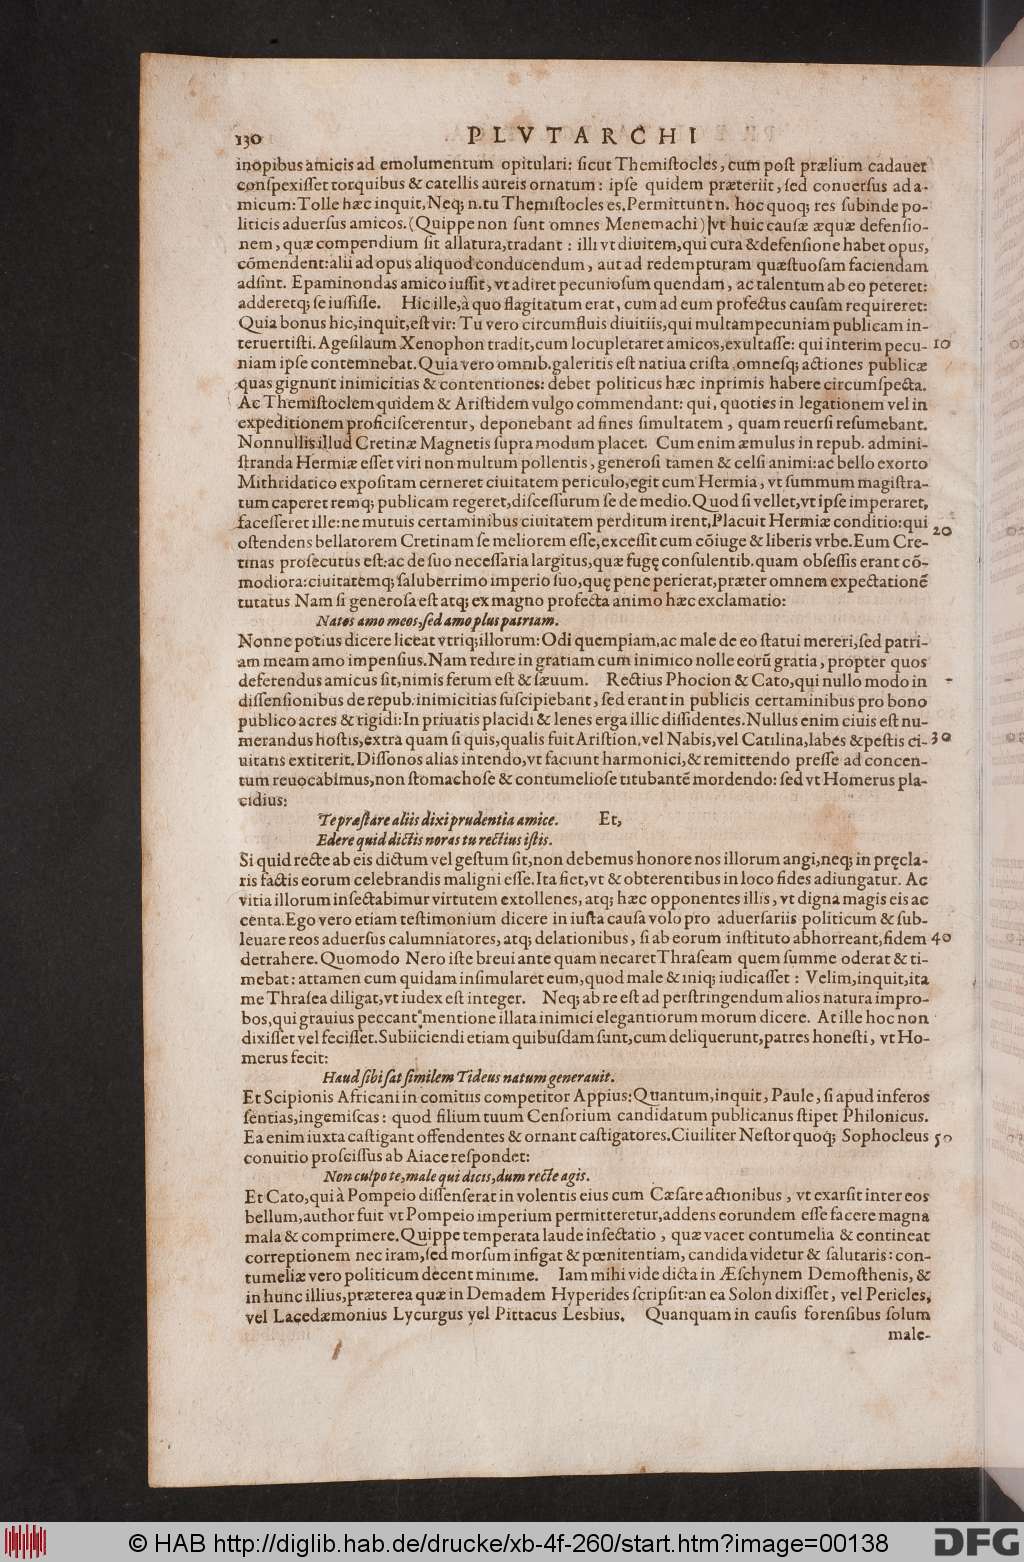 130 PLVTARCHI
inopibus amicis ad emolumentum opitulari: ſicut Themiſtocles, cum poſt prælium cadauer
conſpexiſſet torquibus & catellis aureis ornatum: ipſe quidem præteriit, ſed conuerſus ad a-
micum: Tolle hæc inquit, Neq; n. tu Themiſtocles es. Permittunt n. hoc quoq; res ſubinde po-
liticis aduerſus amicos. (Quippe non ſunt omnes Menemachi) vt huic cauſæ æquæ defenſio-
nem, quæ compendium ſit allatura, tradant: illi vt diuitem, qui cura & defenſione habet opus,
cōmendent: alii ad opus aliquod conducendum, aut ad redempturam quæſtuoſam faciendam
adſint. Epaminondas amico iuſſit, vt adiret pecunioſum quendam, ac talentum ab eo peteret:
adderetq; ſe iuſſiſſe. Hic ille, à quo flagitatum erat, cum ad eum profectus cauſam requireret:
Quia bonus hic, inquit, eſt vir: Tu vero circumfluis diuitiis, qui multam pecuniam publicam in-
teruertiſti. Ageſilaum Xenophon tradit, cum locupletaret amicos, exultaſſe: qui interim pecu- 10
niam ipſe contemnebat. Quia vero omnib. galeritis eſt natiua criſta, omneſq; actiones publicæ
quas gignunt inimicitias & contentiones: debet politicus hæc inprimis habere circumſpecta.
Ac Themiſtoclem quidem & Ariſtidem vulgo commendant: qui, quoties in legationem vel in
expeditionem proficiſcerentur, deponebant ad fines ſimultatem, quam reuerſi reſumebant.
Nonnullis illud Cretinæ Magnetis ſupra modum placet. Cum enim æmulus in repub. admini-
ſtranda Hermiæ eſſet viri non multum pollentis, generoſi tamen & celſi animi: ac bello exorto
Mithridatico expoſitam cerneret ciuitatem periculo, egit cum Hermia, vt ſummum magiſtra-
tum caperet remq; publicam regeret, diſceſſurum ſe de medio. Quod ſi vellet, vt ipſe imperaret,
faceſſeret ille: ne mutuis certaminibus ciuitatem perditum irent, Placuit Hermiæ conditio: qui 20
oſtendens bellatorem Cretinam ſe meliorem eſſe, exceſſit cum cōiuge & liberis vrbe. Eum Cre-
tinas proſecutus eſt: ac de ſuo neceſſaria largitus, quæ fugę conſulentib. quam obſeſſis erant cō-
modiora: ciuitatemq; ſaluberrimo imperio ſuo, quę pene perierat, præter omnem expectationē
tutatus Nam ſi generoſa eſt atq; ex magno profecta animo hæc exclamatio:
Natos amo meos, ſed amo plus patriam.
Nonne potius dicere liceat vtriq; illorum: Odi quempiam, ac male de eo ſtatui mereri, ſed patri-
am meam amo impenſius. Nam redire in gratiam cum inimico nolle eorū gratia, propter quos
deferendus amicus ſit, nimis ferum eſt & ſæuum. Rectius Phocion & Cato, qui nullo modo in
diſſenſionibus de repub. inimicitias ſuſcipiebant, ſed erant in publicis certaminibus pro bono
publico acres & rigidi: In priuatis placidi & lenes erga illic diſſidentes. Nullus enim ciuis eſt nu-
merandus hoſtis, extra quam ſi quis, qualis fuit Ariſtion, vel Nabis, vel Catilina, labes & peſtis ci- 30
uitatis extiterit. Diſſonos alias intendo, vt faciunt harmonici, & remittendo preſſe ad concen-
tum reuocabimus, non ſtomachoſe & contumelioſe titubantē mordendo: ſed vt Homerus pla-
cidius:
Te præſtare aliis dixi prudentia amice. Et,
Edere quid dictis noras tu rectius iſtis.
Si quid recte ab eis dictum vel geſtum ſit, non debemus honore nos illorum angi, neq; in pręcla-
ris factis eorum celebrandis maligni eſſe. Ita fiet, vt & obterentibus in loco fides adiungatur. Ac
vitia illorum inſectabimur virtutem extollenes, atq; hæc opponentes illis, vt digna magis eis ac
centa. Ego vero etiam teſtimonium dicere in iuſta cauſa volo pro aduerſariis politicum & ſub-
leuare reos aduerſus calumniatores, atq; delationibus, ſi ab eorum inſtituto abhorreant, fidem 40
detrahere. Quomodo Nero iſte breui ante quam necaret Thraſeam quem ſumme oderat & ti-
mebat: attamen cum quidam inſimularet eum, quod male & iniq; iudicaſſet: Velim, inquit, ita
me Thraſea diligat, vt iudex eſt integer. Neq; ab re eſt ad perſtringendum alios natura impro-
bos, qui grauius peccant, mentione illata inimici elegantiorum morum dicere. At ille hoc non
dixiſſet vel feciſſet. Subiiciendi etiam quibuſdam ſunt, cum deliquerunt, patres honeſti, vt Ho-
merus fecit:
Haud ſibi ſat ſimilem Tideus natum generauit.
Et Scipionis Africani in comitiis competitor Appius: Quantum, inquit, Paule, ſi apud inferos
ſentias, ingemiſcas: quod filium tuum Cenſorium candidatum publicanus ſtipet Philonicus.
Ea enim iuxta caſtigant offendentes & ornant caſtigatores. Ciuiliter Neſtor quoq; Sophocleus 50
conuitio proſciſſus ab Aiace reſpondet:
Non culpo te, male qui dicis, dum recte agis.
Et Cato, qui à Pompeio diſſenſerat in volentis eius cum Cæſare actionibus, vt exarſit inter eos
bellum, author fuit vt Pompeio imperium permitteretur, addens eorundem eſſe facere magna
mala & comprimere. Quippe temperata laude inſectatio, quæ vacet contumelia & contineat
correptionem nec iram, ſed morſum infigat & pœnitentiam, candida videtur & ſalutaris: con-
tumeliæ vero politicum decent minime. Iam mihi vide dicta in Æſchynem Demoſthenis, &
in hunc illius, præterea quæ in Demadem Hyperides ſcripſit: an ea Solon dixiſſet, vel Pericles,
vel Lacedæmonius Lycurgus vel Pittacus Lesbius. Quanquam in cauſis forenſibus ſolum
male-
© HAB http://diglib.hab.de/drucke/xb-4f-260/start.htm?image=00138
DFG